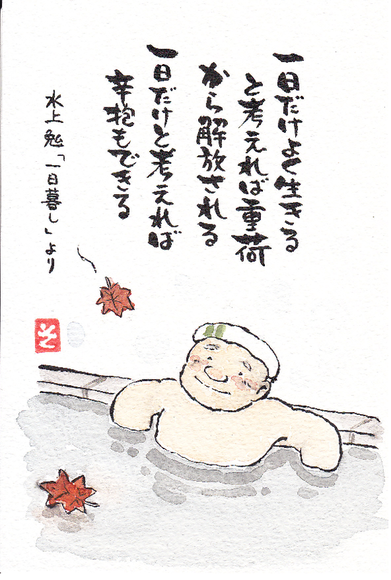 一日だけよく生きる
と考えれば重荷
から解放される
一日だけと考えれば
辛抱もできる
水上 勉「一日暮し」より